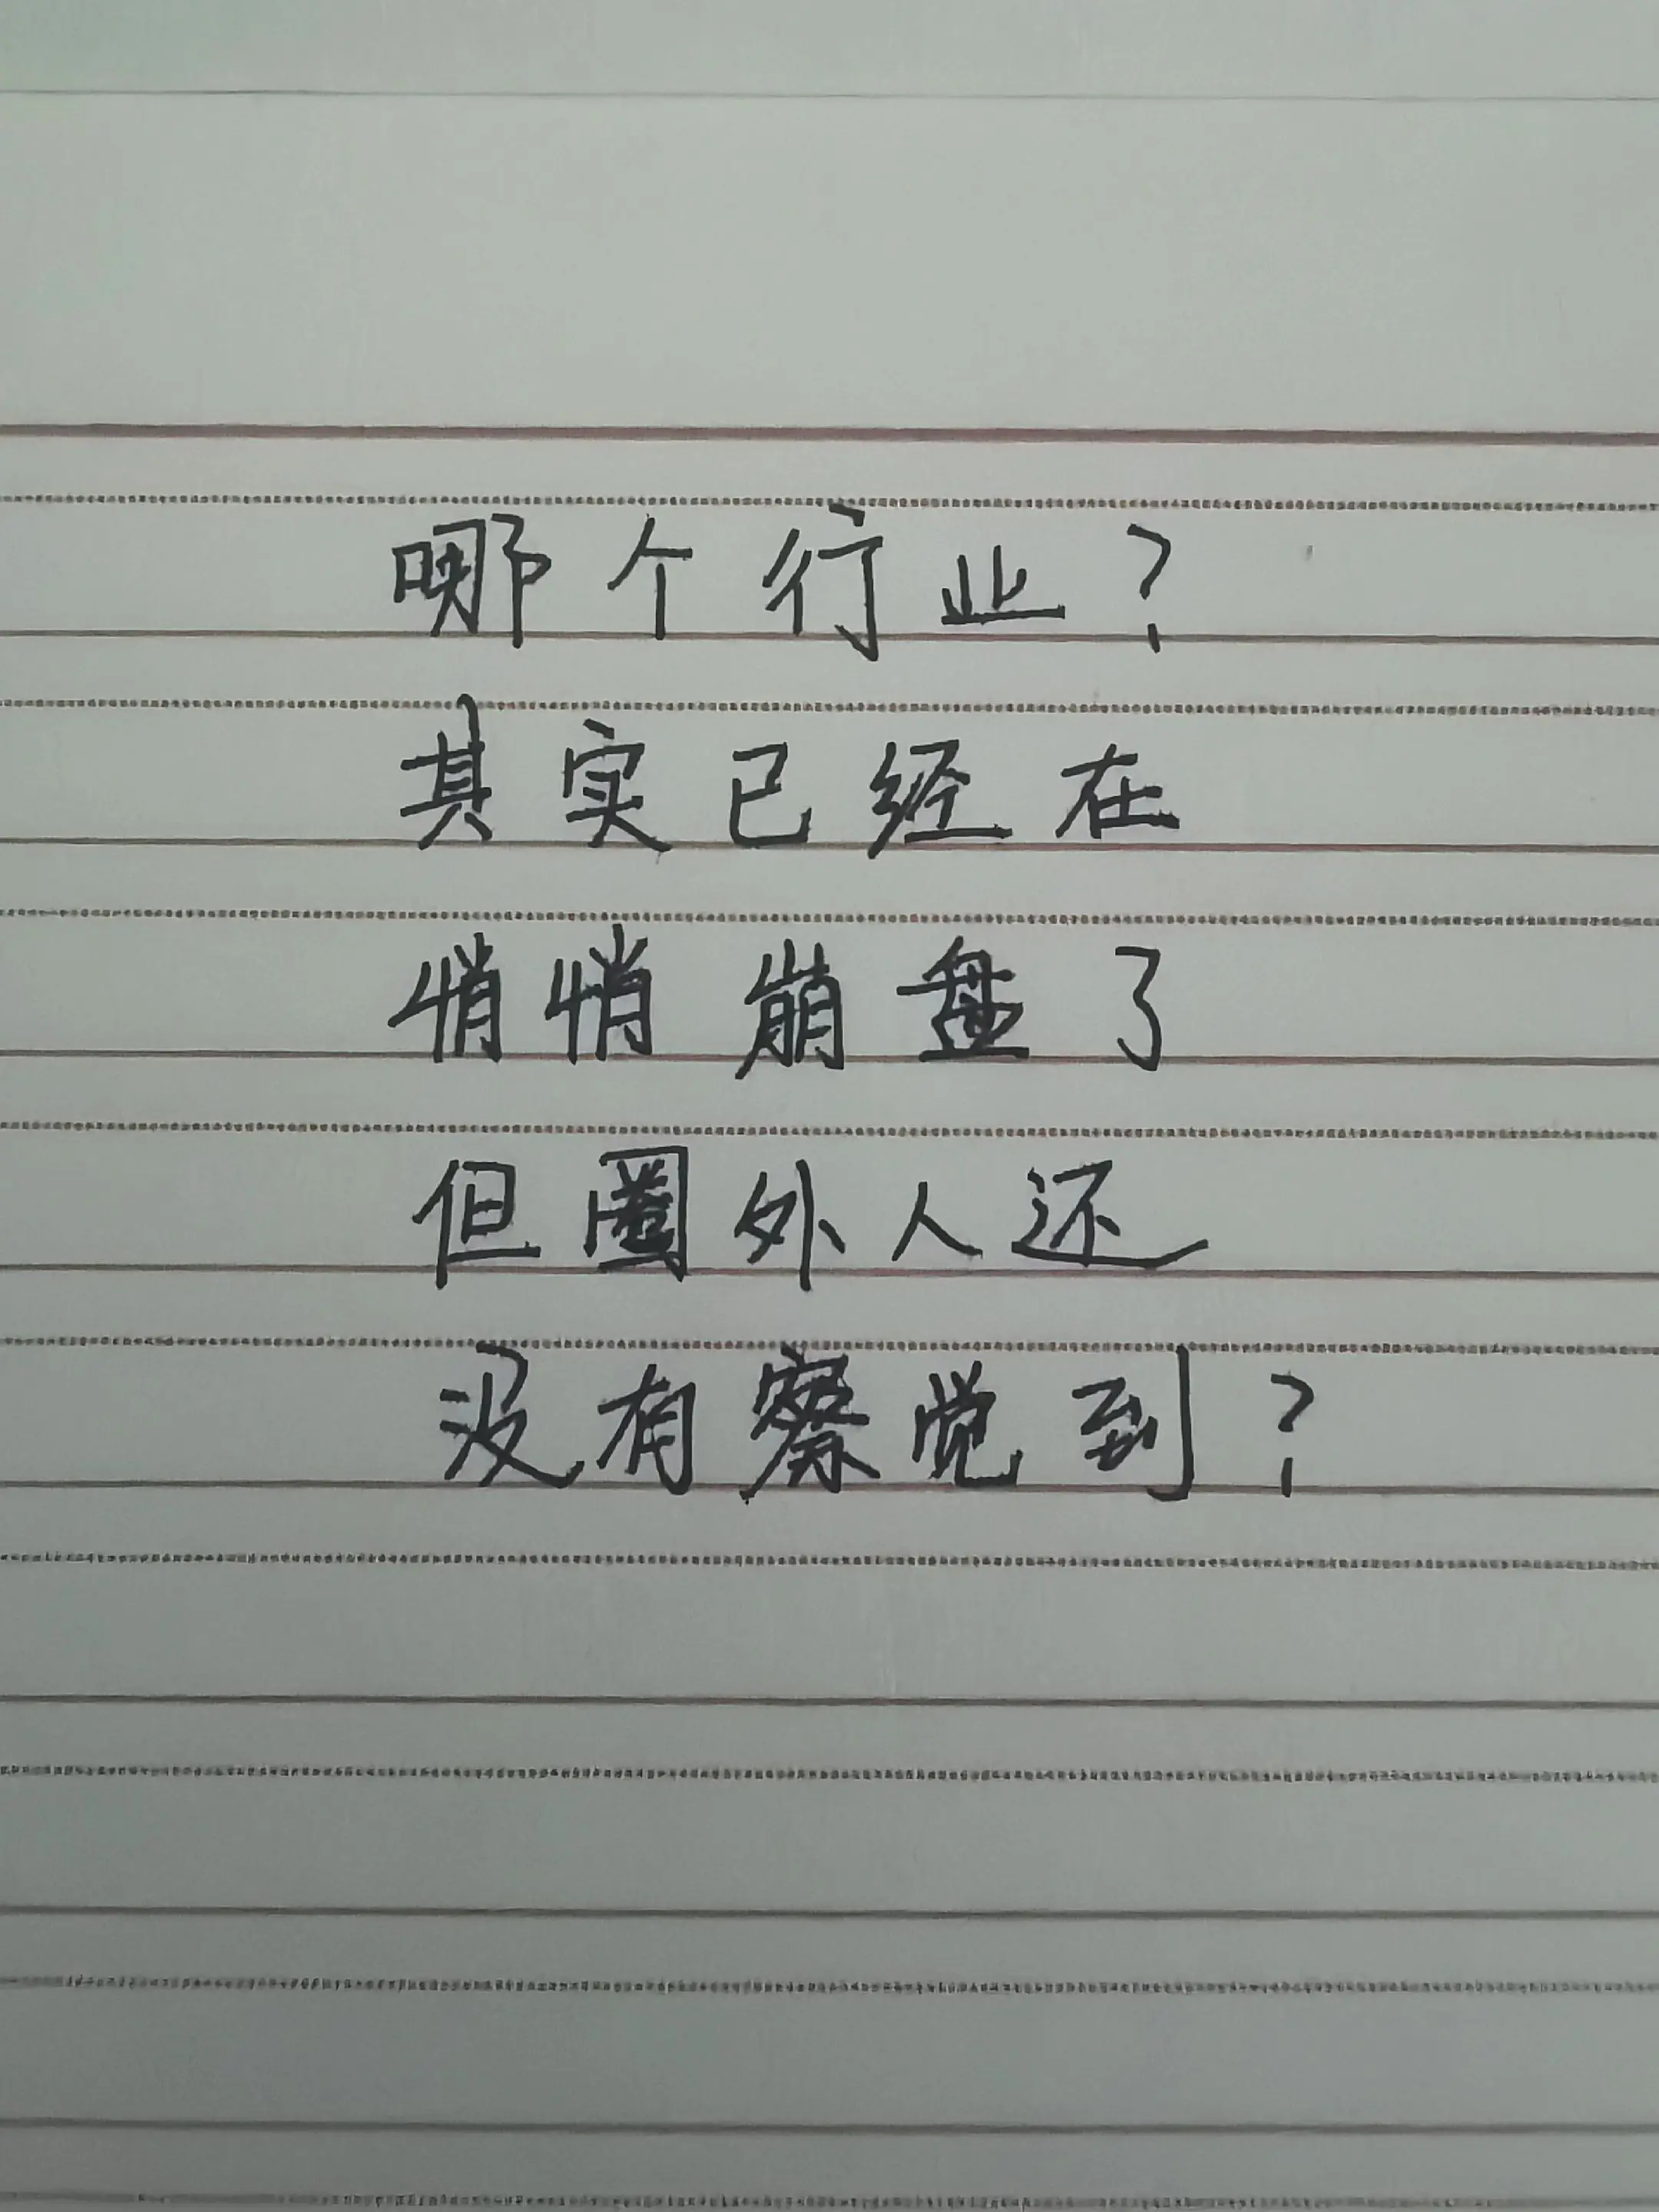 哪个行业？
其实已经在
悄悄崩盘了
但圈外人还
没有察觉到？